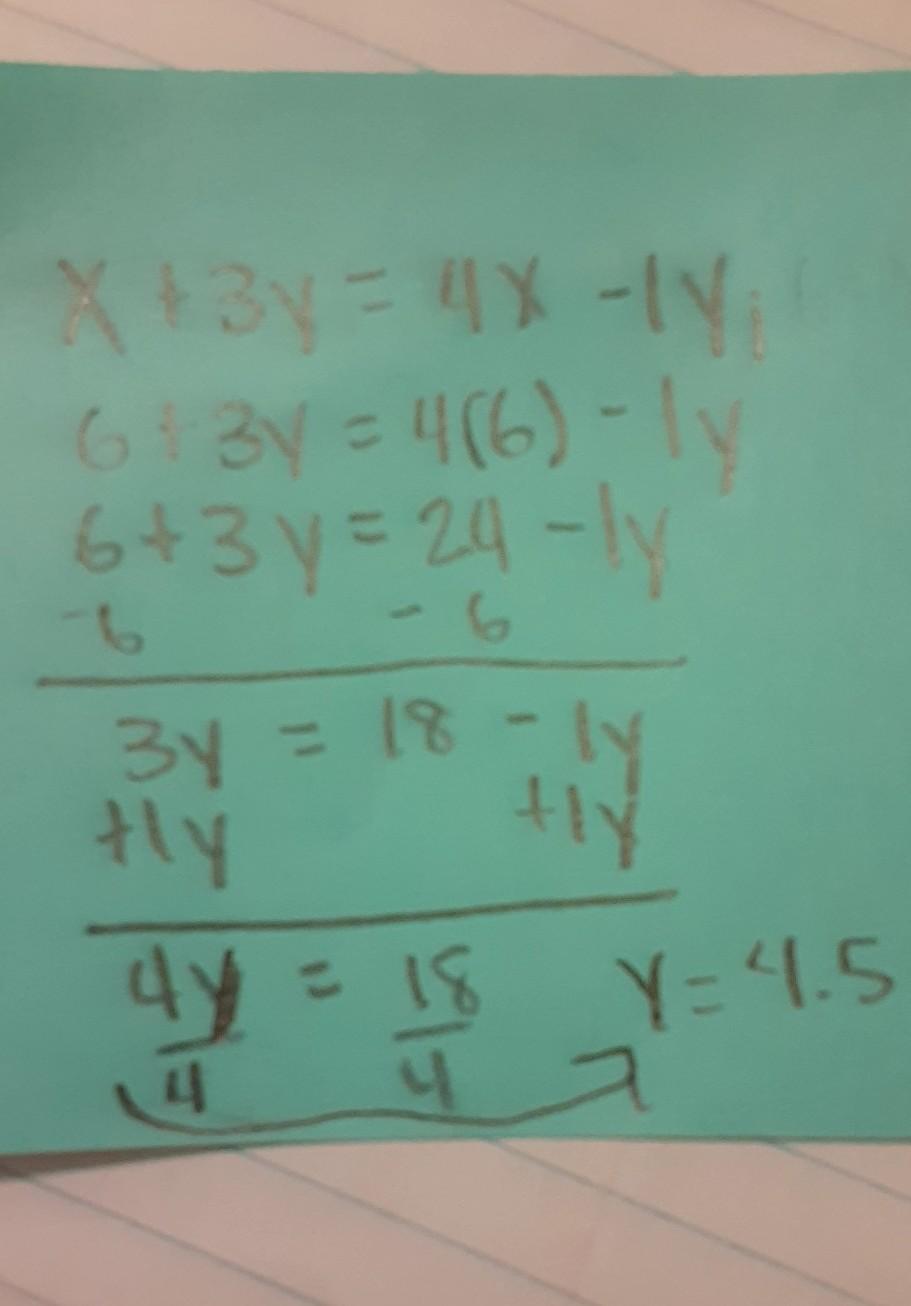 x + 3y = 4x - 1y;
6 + 3y = 4(6) - 1y
6 + 3y = 24 - 1y
-6 - 6
3y = 18 - 1y
+1y +1y
4y = 18 y = 4.5
4 4